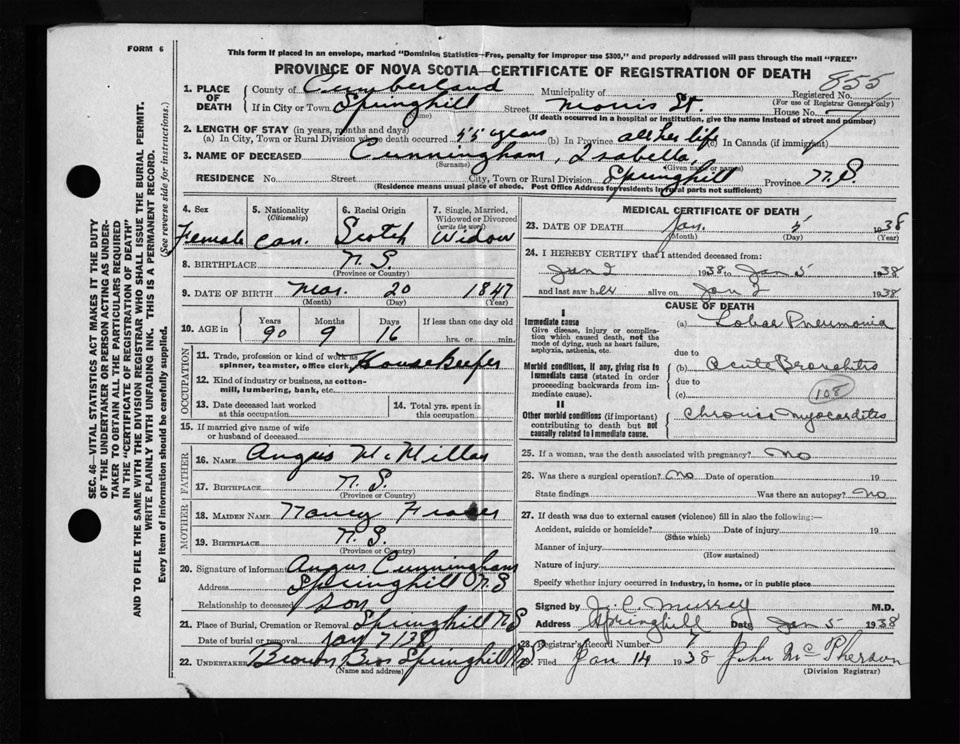 FORM 6
This form if placed in an envelope, marked "Dominion Statistics—Free, penalty for improper use $300," and properly addressed will pass through the mail "FREE"
PROVINCE OF NOVA SCOTIA—CERTIFICATE OF REGISTRATION OF DEATH
855
1. PLACE OF DEATH
County of Cumberland Municipality of Registered No.
(For use of Registrar General only)
If in City or Town Springhill Street Morris St. House No.
(Name) (If death occurred in a hospital or institution, give the name instead of street and number)
2. LENGTH OF STAY (in years, months and days)
(a) In City, Town or Rural Division where death occurred 55 years (b) In Province all her life (c) In Canada (if immigrant)
3. NAME OF DECEASED Cunningham, Isabella,
(Surname) (Given name or names)
RESIDENCE No. Street City, Town or Rural Division Springhill Province N.S.
(Residence means usual place of abode. Post Office Address for residents in rural parts not sufficient)
4. Sex 5. Nationality (Citizenship) 6. Racial Origin 7. Single, Married, Widowed or Divorced (write the word)
Female Can. Scotch Widow
8. BIRTHPLACE N.S.
(Province or Country)
9. DATE OF BIRTH Mar. 20 1847
(Month) (Day) (Year)
10. AGE in Years Months Days If less than one day old
90 9 16 hrs. or min.
OCCUPATION
11. Trade, profession or kind of work as spinner, teamster, office clerk, Housekeeper
12. Kind of industry or business, as cotton-mill, lumbering, bank, etc.
13. Date deceased last worked at this occupation 14. Total yrs. spent in this occupation
15. If married give name of wife or husband of deceased
FATHER
16. NAME Angus McMillan
17. BIRTHPLACE N.S.
(Province or Country)
MOTHER
18. MAIDEN NAME Nancy Fraser
19. BIRTHPLACE N.S.
(Province or Country)
20. Signature of informant Angus Cunningham
Address Springhill N.S
Relationship to deceased Son
21. Place of Burial, Cremation or Removal Springhill N.S
Date of burial or removal Jan 7/38
22. Undertaker Brown Bros Springhill N.S
(Name and address)
MEDICAL CERTIFICATE OF DEATH
23. DATE OF DEATH Jan. 5 1938
(Month) (Day) (Year)
24. I HEREBY CERTIFY that I attended deceased from:
Jan 2 1938 to Jan 5 1938
and last saw her alive on Jan 2 1938
CAUSE OF DEATH
I
Immediate cause
Give disease, injury or complication which caused death, not the mode of dying, such as heart failure, asphyxia, asthenia, etc.
(a) Lobar Pneumonia
due to
Morbid conditions, if any, giving rise to immediate cause (stated in order proceeding backwards from immediate cause).
(b) Acute Bronchitis
due to
(c) 108
II
Other morbid conditions (if important) contributing to death but not causally related to immediate cause.
Chronic Myocarditis
25. If a woman, was the death associated with pregnancy? No
26. Was there a surgical operation? No Date of operation 19
State findings Was there an autopsy? No
27. If death was due to external causes (violence) fill in also the following:—
Accident, suicide or homicide? Date of injury 19
(State which)
Manner of injury
(How sustained)
Nature of injury
Specify whether injury occurred in industry, in home, or in public place
Signed by J. C. Murray M.D.
Address Springhill Date Jan 5 1938
28. Registrar's Record Number 7
Filed Jan 14 1938 John McPherson
(Division Registrar)
SEC. 46—VITAL STATISTICS ACT MAKES IT THE DUTY
OF THE UNDERTAKER OR PERSON ACTING AS UNDER-
TAKER TO OBTAIN ALL THE PARTICULARS REQUIRED
IN THE "CERTIFICATE OF REGISTRATION OF DEATH"
AND TO FILE THE SAME WITH THE DIVISION REGISTRAR WHO SHALL ISSUE THE BURIAL PERMIT.
WRITE PLAINLY WITH UNFADING INK. THIS IS A PERMANENT RECORD.
Every item of information should be carefully supplied. (See reverse side for instructions.)